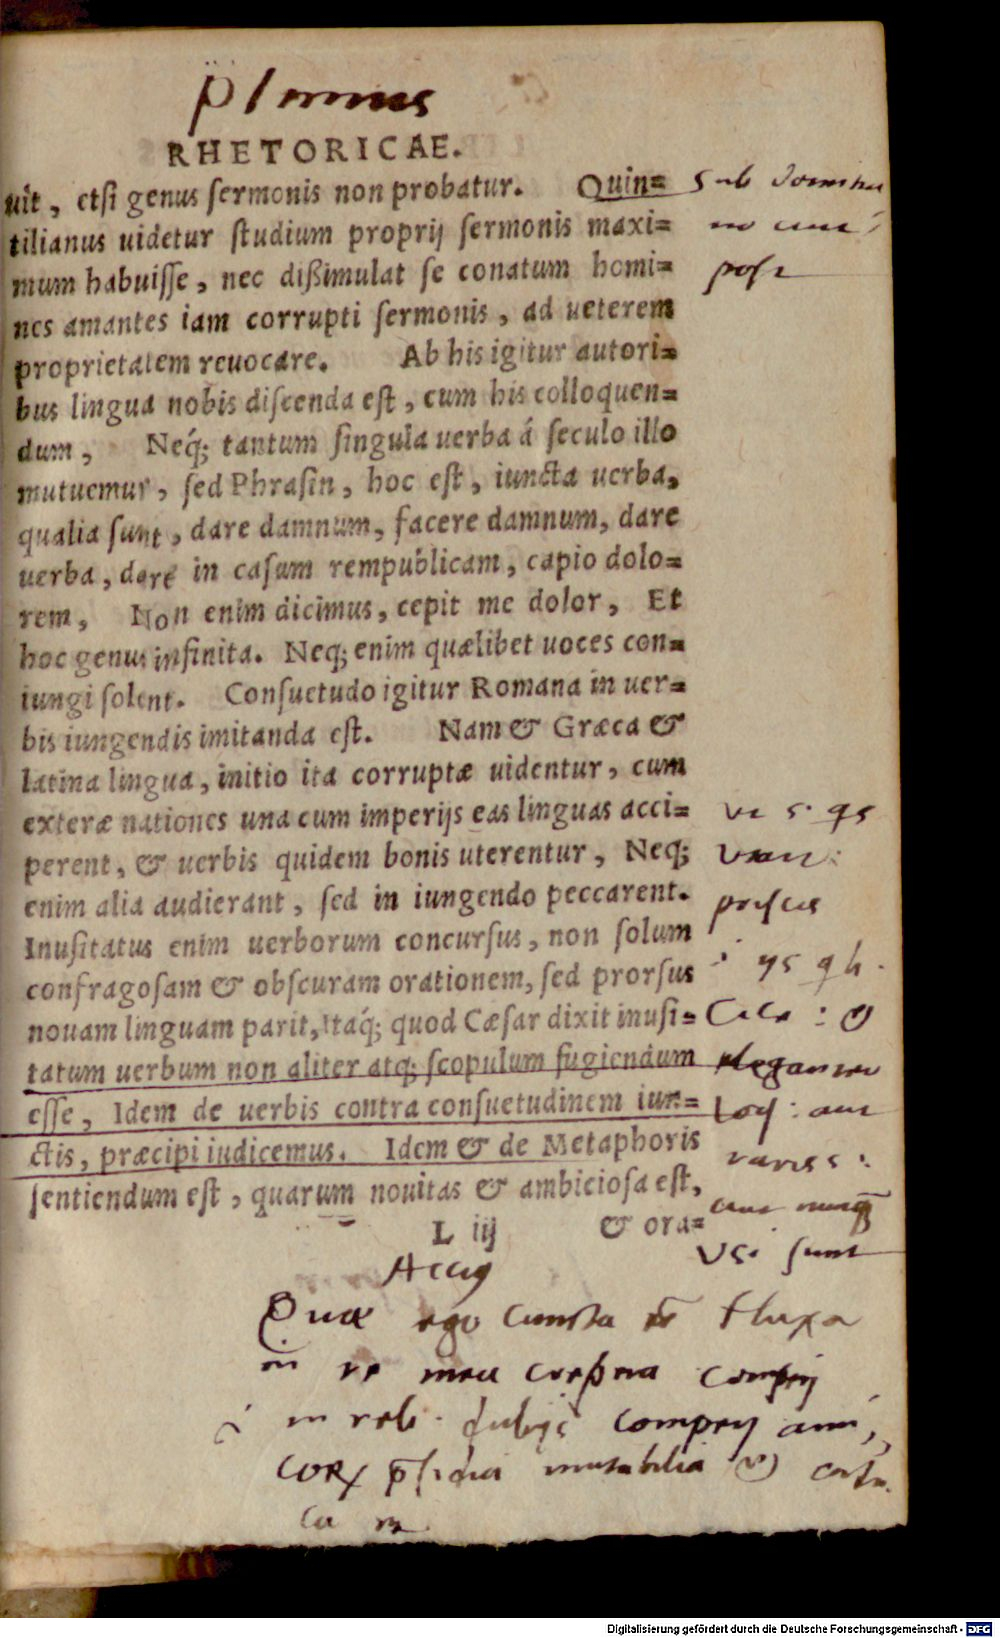 RHETORICAE.
uit, etsi genus sermonis non probatur. Quin=
tilianus uidetur studium proprij sermonis maxi=
mum habuisse, nec dißimulat se conatum homi=
nes amantes iam corrupti sermonis, ad ueterem
proprietatem reuocare. Ab his igitur autori=
bus lingua nobis discenda est, cum his colloquen=
dum, Neq́; tantum singula uerba á seculo illo
mutuemur, sed Phrasin, hoc est, iuncta uerba,
qualia sunt, dare damnum, facere damnum, dare
uerba, dare in casum rempublicam, capio dolo=
rem, Non enim dicimus, cepit me dolor, Et
hoc genus infinita. Neq; enim quælibet uoces con=
iungi solent. Consuetudo igitur Romana in uer=
bis iungendis imitanda est. Nam & Græca &
latina lingua, initio ita corruptæ uidentur, cum
exteræ nationes una cum imperijs eas linguas acci=
perent, & uerbis quidem bonis uterentur, Neq;
enim alia audierant, sed in iungendo peccarent.
Inusitatus enim uerborum concursus, non solum
confragosam & obscuram orationem, sed prorsus
nouam linguam parit, Itaq́; quod Cæsar dixit inusi=
tatum uerbum non aliter atq; scopulum fugiendum
esse, Idem de uerbis contra consuetudinem iun=
ctis, præcipi iudicemus. Idem & de Metaphoris
sentiendum est, quarum nouitas & ambiciosa est,
L iij & ora=
sub
post
priscis
usi sunt
Quæ ego cuncta fluxa
in re mea comperij
in reb. dubijs comperij
mutabilia